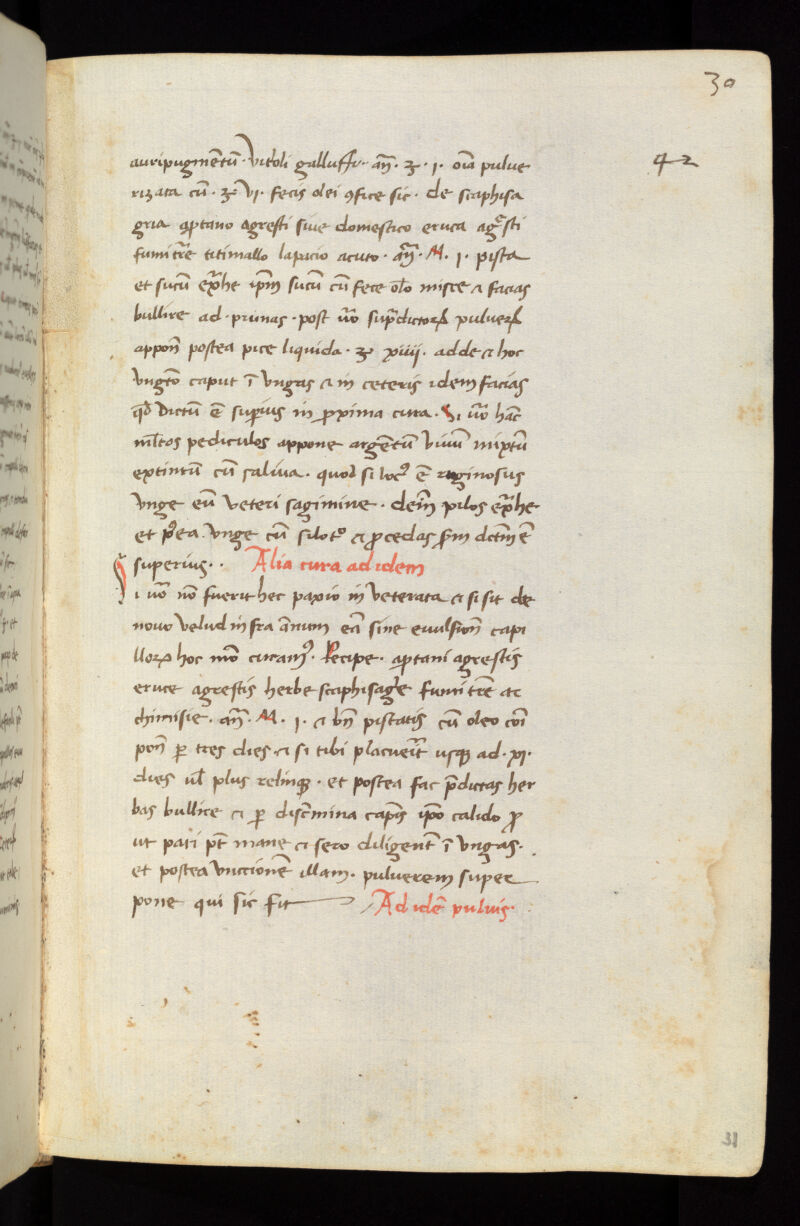 30
42
auripugmētū · Vit'oli galluffr · an̄ · ʒ · i · oīa pulue
rizata cū · ʒ vi · fecis olei 9fice sic · de staphisa
gria aprtano agresti siue domestico eruca agͣsti
fumitͬre titimallo lapacio acuto · an̄ · M · i · pista
et sucū exͣhe ip̄m sucū cū fece oło misce & facias
bullire ad · prunas · post ūo sup̄dictoꝝ pulueꝝ
appoñ postea pice liquida · ʒ xiiii · adde & hoc
vngͭo caput ī vngas & in ceteris idem facias
qđ dictū ē superius in proxima cura · Si ūo hāt
mͭltos pediculos appone argētū viuū mixtū
extintū cū saliua · quod si loc9 ē ruginosus
vnge eū veteri sagimine · deīn pilos exͣhe
et p9ea vnge cū silot9 & procedas scd̄m dc̄m ē
superius · · Alia cura ad idem
Si ūo nō fuerit hec paxio in veterata & si sit de
nouo velud infra annum eā sine euulsioñ capi
lloꝝ hoc mō curam9 · Recipe · aprtani agrestis
eruce agrestis herbe staphisagͥe fumitͬre ar
thimisie · an̄ · M · i · & bñ pistatis cū oleo cōi
poñ ꝑ tres dies & si tibi placueīt usqꝫ ad · xi ·
dies ul' plus relinqꝫ · et postea fac p̄dictas her
bas bullire & ꝑ discͥmina capͥtis ip̄o calido pro
ut pati pōt mane & sero diligent̄ ī vngas ·
et postea vnccionē illam · puluerem super
pone qui sic fit Ad idē puluis ·
31